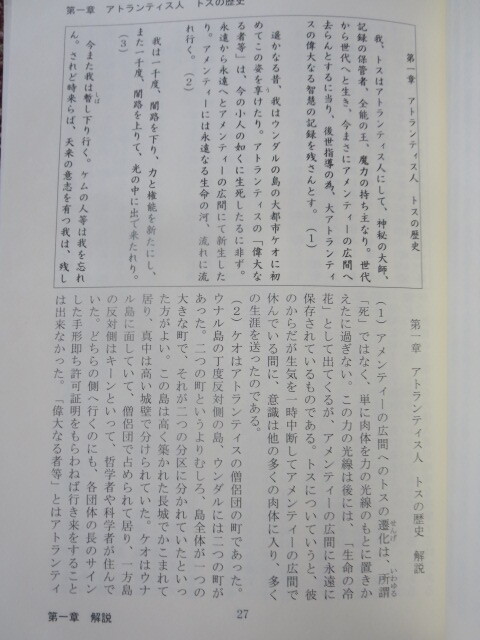 第一章　アトランティス人　トスの歴史
第一章　アトランティス人　トスの歴史
我、トスはアトランティス人にして、神秘の大師、
記録の保管者、全能の王、魔力の持ち主なり。世代
から世代へと生き、今まさにアメンティーの広間へ
去らんとするに当り、後世指導の為、大アトランティ
スの偉大なる智慧の記録を残さんとす。　（1）
遥かなる昔、我はウンダルの島の大都市ケオに初
めてこの姿を享けたり。アトランティスの「偉大な
る者等」は、今の小人の如くに生死したるに非ず。
永遠から永遠へとアメンティーの広間にて新生した
り。アメンティーには永遠なる生命の河、流れに流
れ行く。　（2）
我は一千度、闇路を下り、力と権能を新たにし、
また一千度、闇路を上りて、光の中に出で来たれり。
（3）
今また我は暫し下り行く。ケムの人等は我を忘れ
ん。されど時来らば、天来の意志を有つ我は、残し
第一章　アトランティス人　トスの歴史　解説
（1）アメンティーの広間へのトスの遷化は、所謂
「死」ではなく、単に肉体を力の光線のもとに置きか
えたに過ぎない。この力の光線は後には、「生命の冷
花」として出てくるが、アメンティーの広間に永遠に
保存されているものである。トスについていうと、彼
のからだが生気を一時中断してアメンティーの広間で
休んでいる間に、意識は他の多くの肉体に入り、多く
の生涯を送ったのである。
（2）ケオはアトランティスの僧侶団の町であった。
ウナル島の丁度反対側の島、ウンダルには二つの町が
あった。二つの町というよりむしろ、島全体が一つの
大きな町で、それが二つの分区に分かれていたといっ
た方がよい。この島は高く築かれた長城でかこまれて
居り、真中は高い城壁で分けられていた。ケオはウナ
ル島に面していて、僧侶団で占められて居り、一方島
の反対側はキーンといって、哲学者や科学者が住んで
いた。どちらの側へ行くのにも、各団体の長のサイン
した手形即ち許可証明をもらわねば行き来をすること
は出来なかった。「偉大なる者等」とはアトランティ
第一章　解説
27